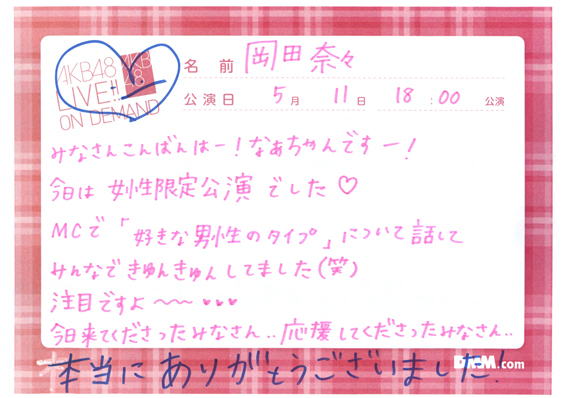 AKB48
LIVE!!
ON DEMAND
AKB
48
名前 岡田奈々
公演日 5月 11日 18:00 公演
みなさんこんばんはー!なぁちゃんですー!
今日は 女性限定公演 でした♡
MCで「好きな男性のタイプ」について話して
みんなできゅんきゅんしてました(笑)
注目ですよ〜〜♥♥♥
今日来てくださったみなさん..応援してくださったみなさん..
本当にありがとうございました!
DMM.com